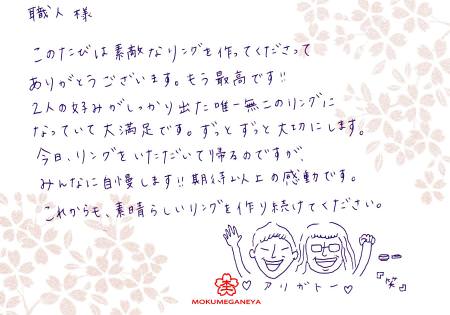 職人 様
このたびは素敵なリングを作ってくださって
ありがとうございます。もう最高です!!
2人の好みがしっかり出た唯一無二のリングに
なっていて大満足です。ずっとずっと大切にします。
今日、リングをいただいて帰るのですが、
みんなに自慢します!!期待以上の感動です。
これからも、素晴らしいリングを作り続けてください。
♡アリガトー♡
『笑』
MOKUMEGANEYA